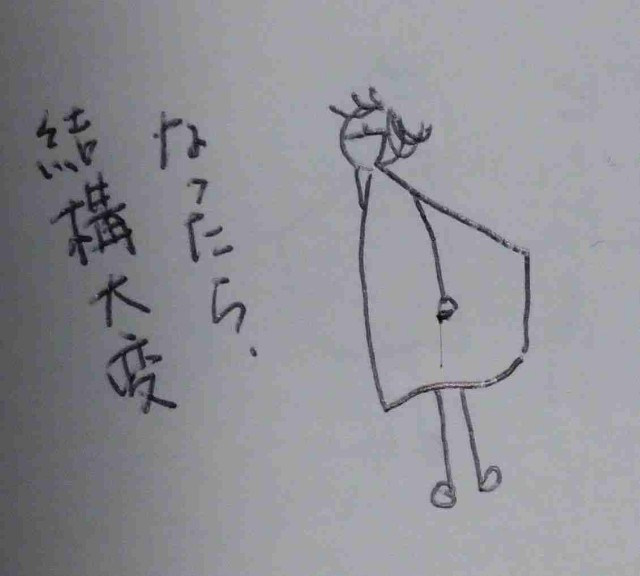 なったら、
結構大変